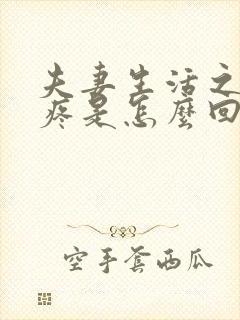 夫妻生活之
疼是怎麼回
空手套西瓜